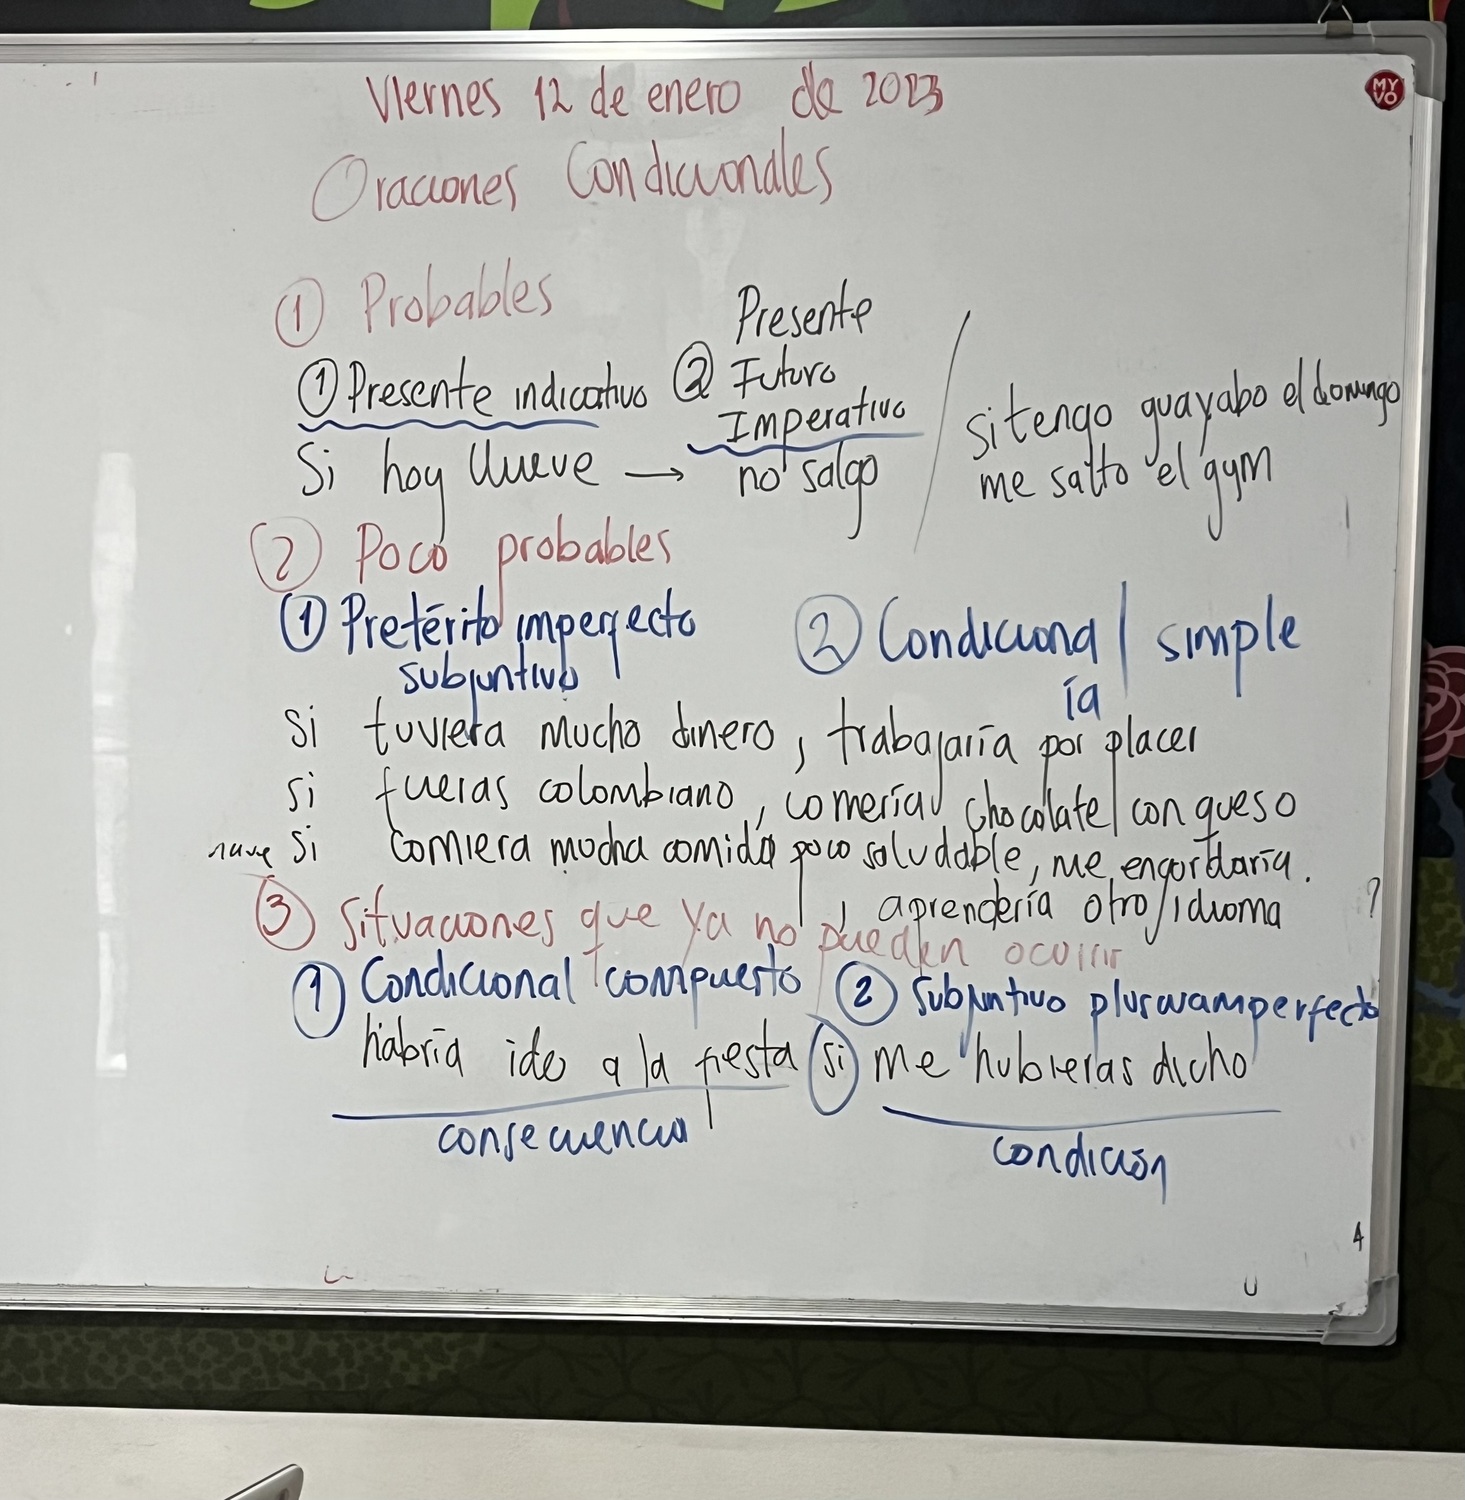 Viernes 12 de enero de 2023
Oraciones Condicionales
MY VO
① Probables
① Presente indicativo ② Presente
Futuro
Imperativo
Si hoy llueve → no salgo
si tengo guayabo el domingo
me salto el gym
② Poco probables
① Pretérito imperfecto
subjuntivo
② Condicional simple
ía
si tuviera mucho dinero, trabajaría por placer
si fueras colombiano, comerías chocolate con queso
si comiera mucha comida poco saludable, me engordaría.
, aprendería otro idioma ?
③ Situaciones que ya no pueden ocurrir
① Condicional compuesto ② Subjuntivo pluscuamperfecto
habría ido a la fiesta si me hubieras dicho
consecuencia
condición